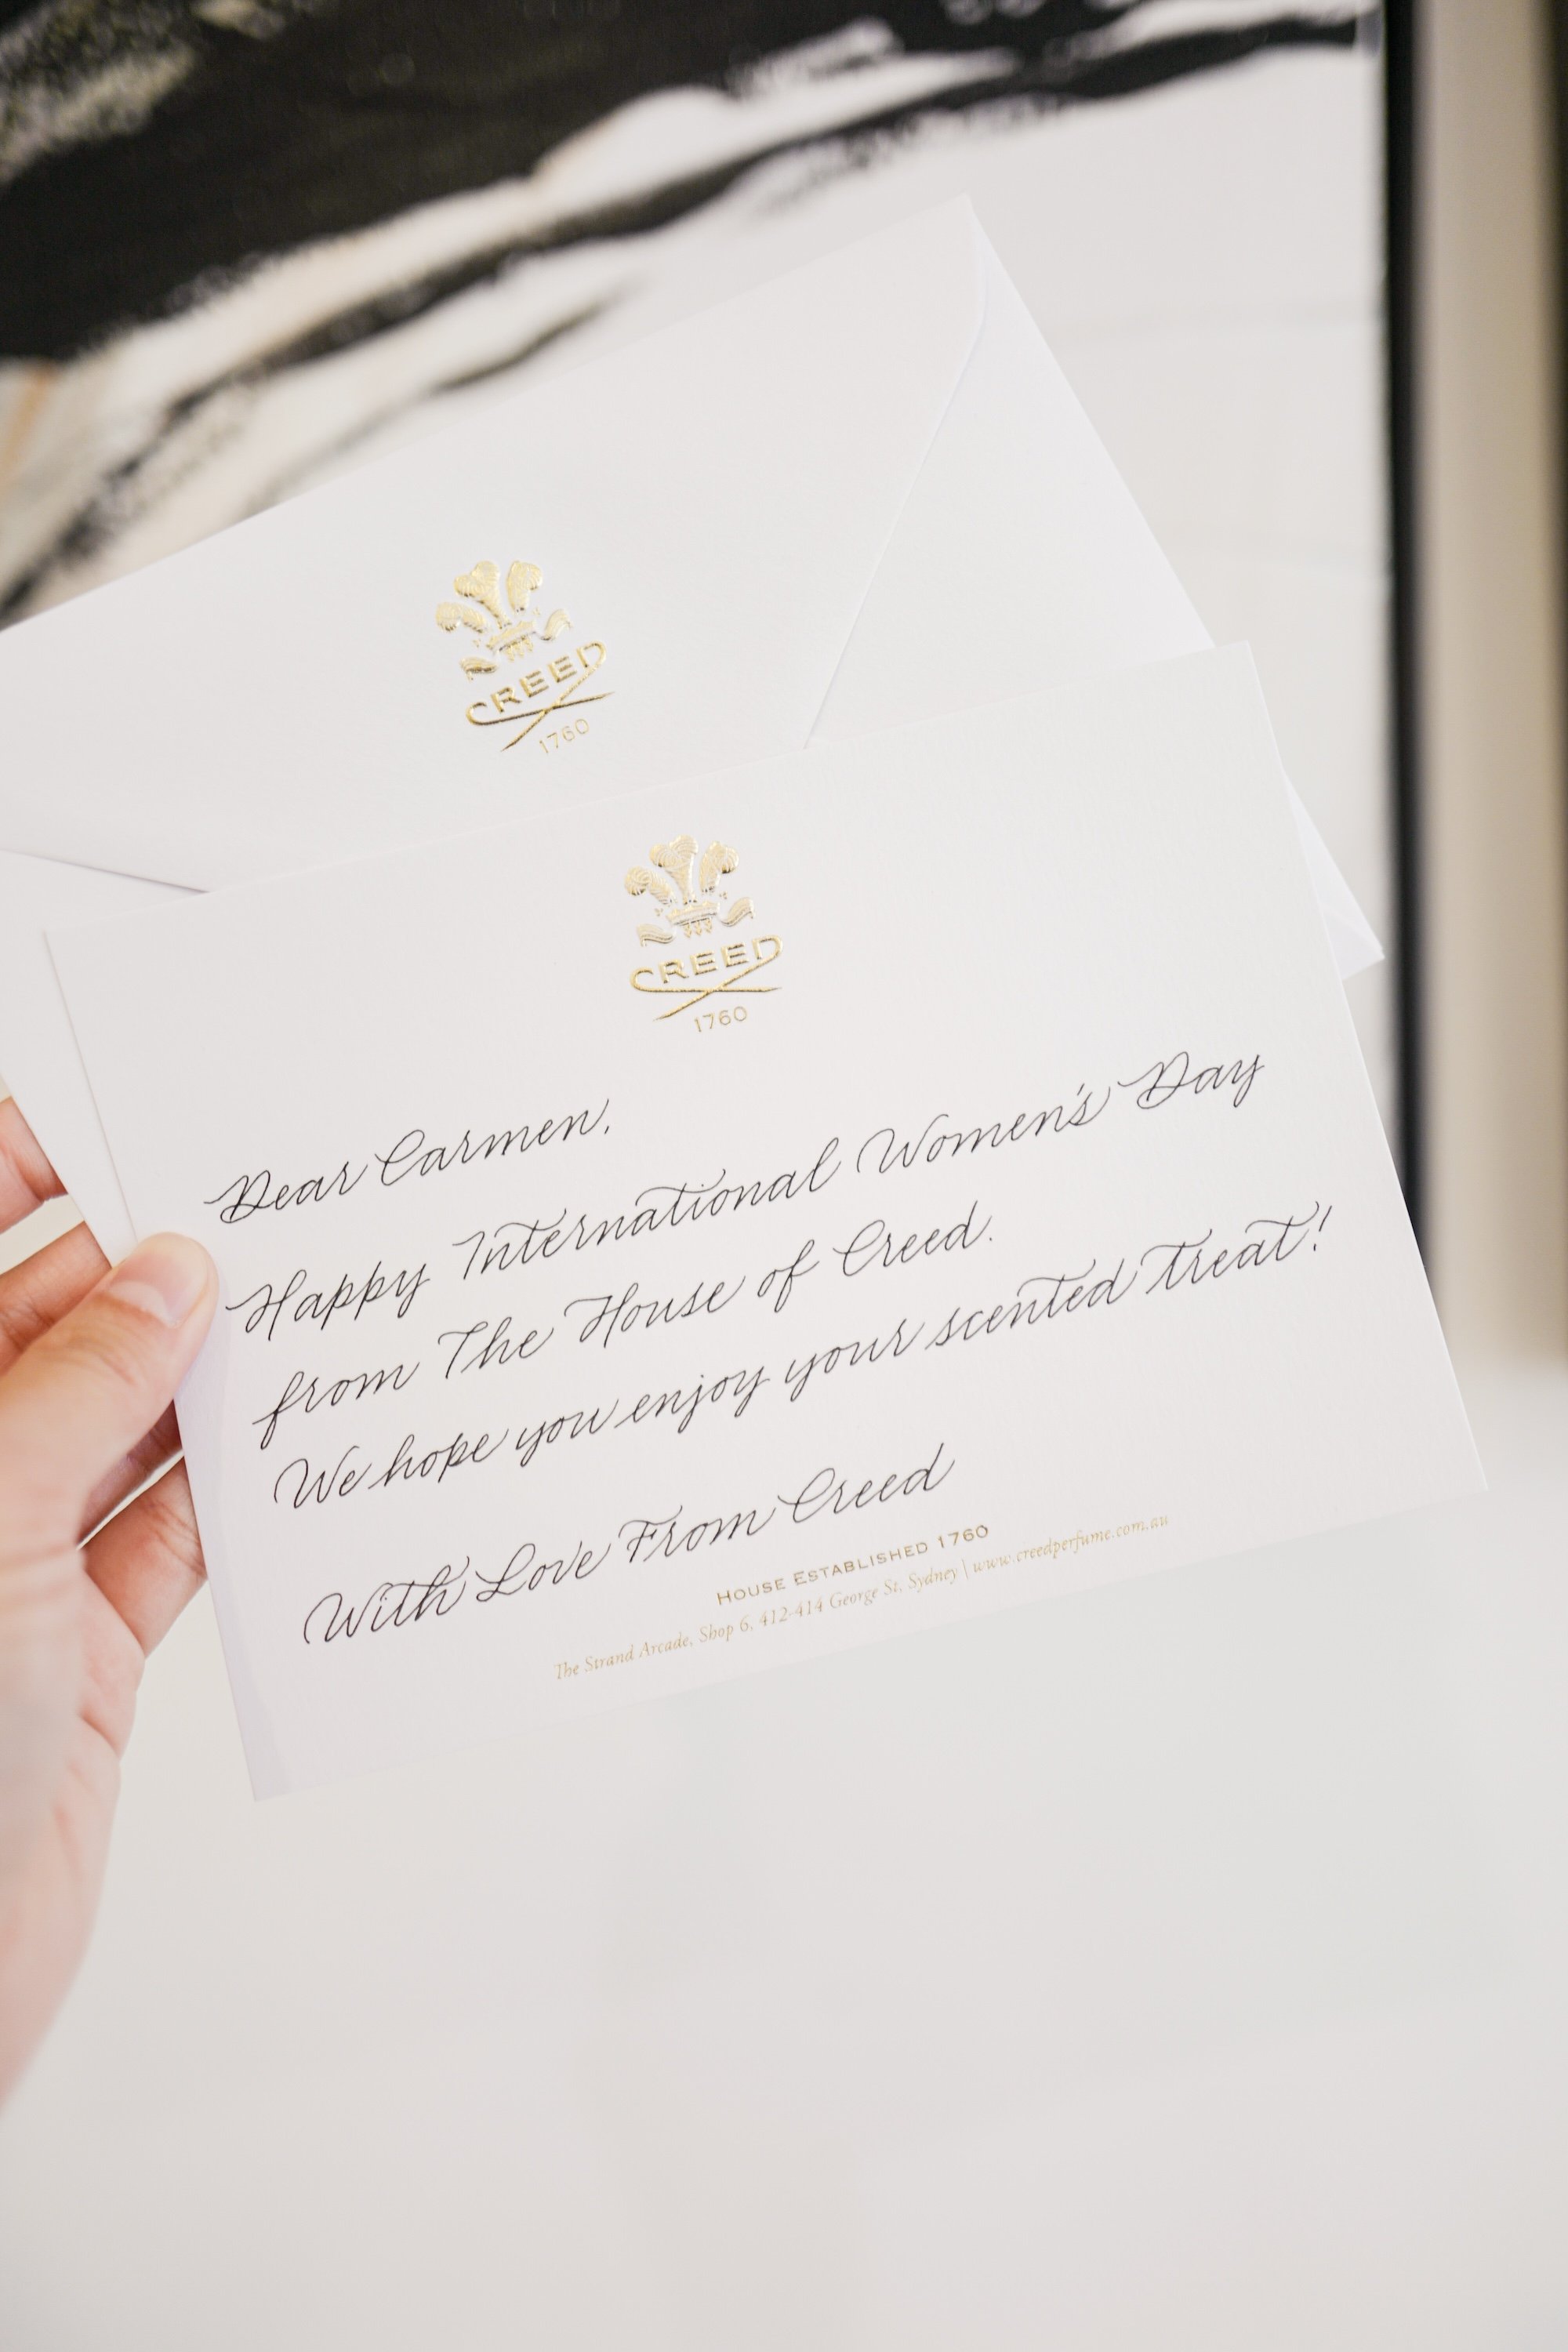 CREED
1760
CREED
1760
Dear Carmen,
Happy International Women's Day
from The House of Creed.
We hope you enjoy your scented treat!
With Love From Creed
HOUSE ESTABLISHED 1760
The Strand Arcade, Shop 6, 412-414 George St. Sydney | www.creedperfume.com.au